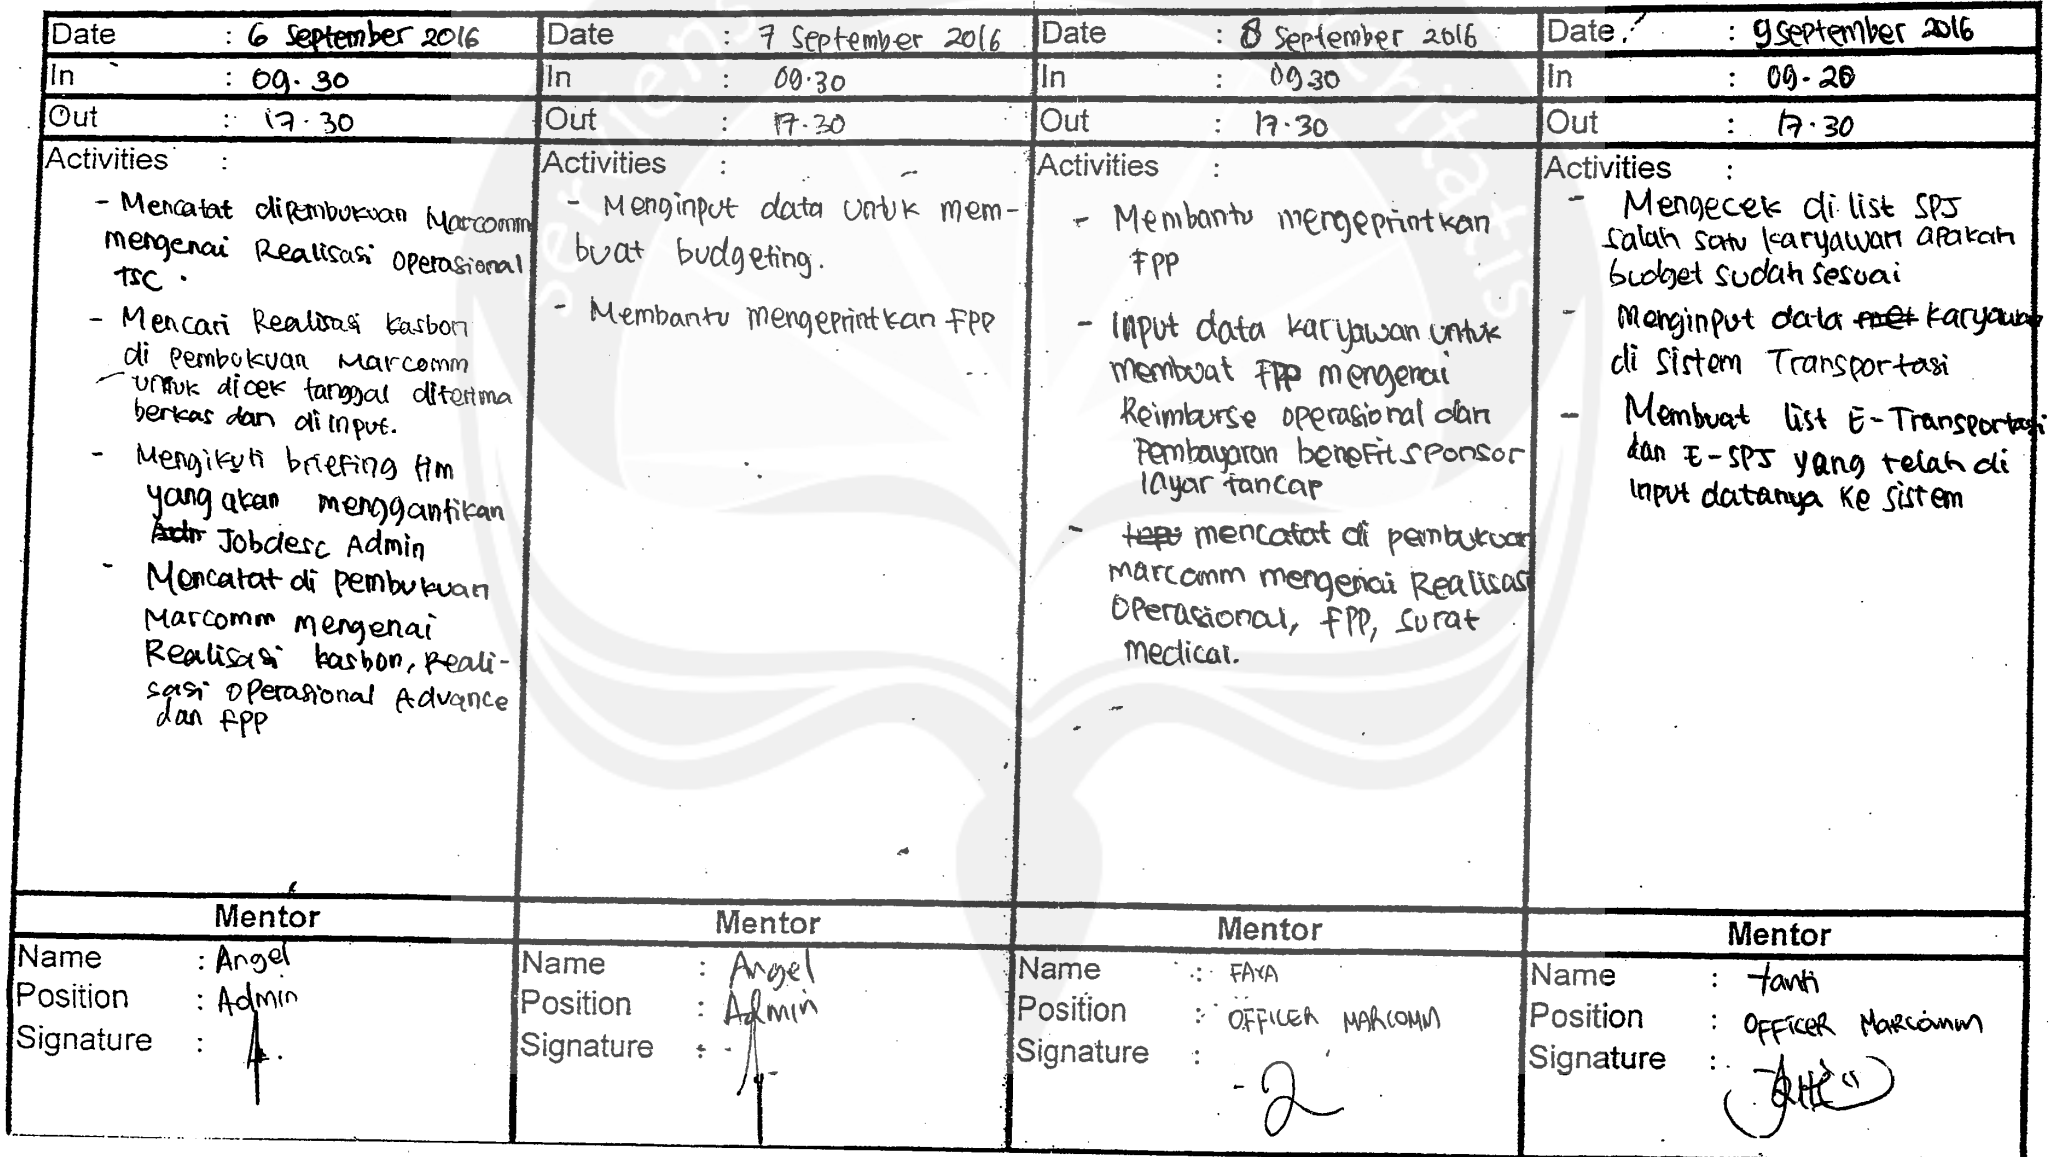 Date : 6 September 2016
In : 09.30
Out : 17.30
Activities :
- Mencatat dipembukuan Marcomm
mengenai Realisasi Operasional
TSC.
- Mencari Realisasi kasbon
di pembukuan Marcomm
untuk dicek tanggal diterima
berkas dan di input.
- Mengikuti briefing tim
yang akan menggantikan
Adm Jobdesc Admin
- Mencatat di pembukuan
Marcomm mengenai
Realisasi kasbon, Reali-
sasi Operasional Advance
dan FPP
Mentor
Name : Angel
Position : Admin
Signature :
Date : 7 September 2016
In : 09.30
Out : 17.30
Activities :
- Menginput data untuk mem-
buat budgeting.
- Membantu mengeprintkan FPP
Mentor
Name : Angel
Position : Admin
Signature :
Date : 8 September 2016
In : 09.30
Out : 17.30
Activities :
- Membantu mengeprintkan
FPP
- Input data karyawan untuk
membuat FPP mengenai
Reimburse operasional dan
Pembayaran benefit sponsor
layar tancap
- mencatat di pembukuan
marcomm mengenai Realisasi
Operasional, FPP, Surat
medical.
Mentor
Name : FAYA
Position : OFFICER MARCOMM
Signature :
Date : 9 september 2016
In : 09.20
Out : 17.30
Activities :
- Mengecek di list SPJ
salah satu karyawan apakah
budget sudah sesuai
- Menginput data karyawan
di sistem Transportasi
- Membuat list E-Transportasi
dan E-SPJ yang telah di
input datanya ke sistem
Mentor
Name : tanti
Position : OFFICER MARCOMM
Signature :
serviens
veritatis